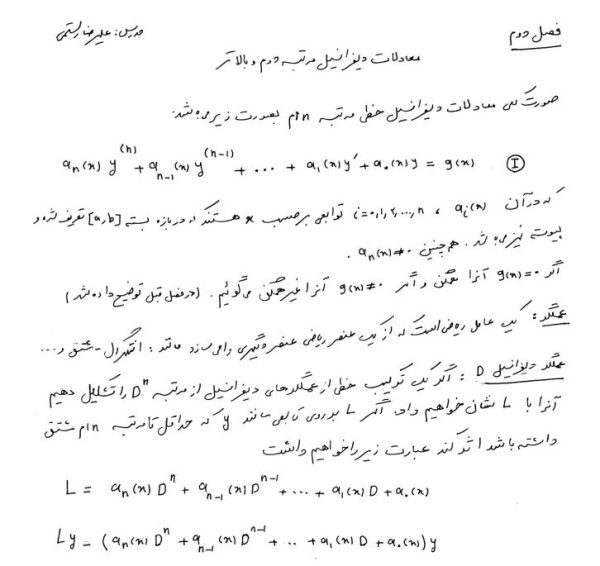 فصل دوم
مدرس: علیرضا رستمی
معادلات دیفرانسیل مرتبه دوم و بالاتر
صورت کلی معادلات دیفرانسیل خطی مرتبه nام بصورت زیر می باشد.
aₙ(x) y⁽ⁿ⁾ + aₙ₋₁(x) y⁽ⁿ⁻¹⁾ + ... + a₁(x)y′ + a₀(x)y = g(x) Ⓘ
که در آن aᵢ(x) ، i=0,1,2,...,n توابعی برحسب x هستند که در بازه بسته [a,b] تعریف شده و
پیوسته نیز می باشد. همچنین aₙ(x)≠0 .
اگر g(x)=0 آنرا همگن و اگر g(x)≠0 آنرا غیر همگن می گوئیم. (در فصل قبل توضیح داده شد)
عملگر: یک عامل ریاضی است که از یک عنصر ریاضی عنصر دیگری را می سازد مانند: انتگرال - مشتق و ...
عملگر دیفرانسیل D : اگر یک ترکیب خطی از عملگرهای دیفرانسیل از مرتبه Dⁿ را تشکیل دهیم
آنرا با L نشان خواهیم داد. اگر L بر روی تابعی مانند y که حداقل تا مرتبه nام مشتق
داشته باشد اثر کند عبارت زیر را خواهیم داشت
L = aₙ(x) Dⁿ + aₙ₋₁(x) Dⁿ⁻¹ + ... + a₁(x) D + a₀(x)
Ly = (aₙ(x) Dⁿ + aₙ₋₁(x) Dⁿ⁻¹ + .. + a₁(x) D + a₀(x)) y